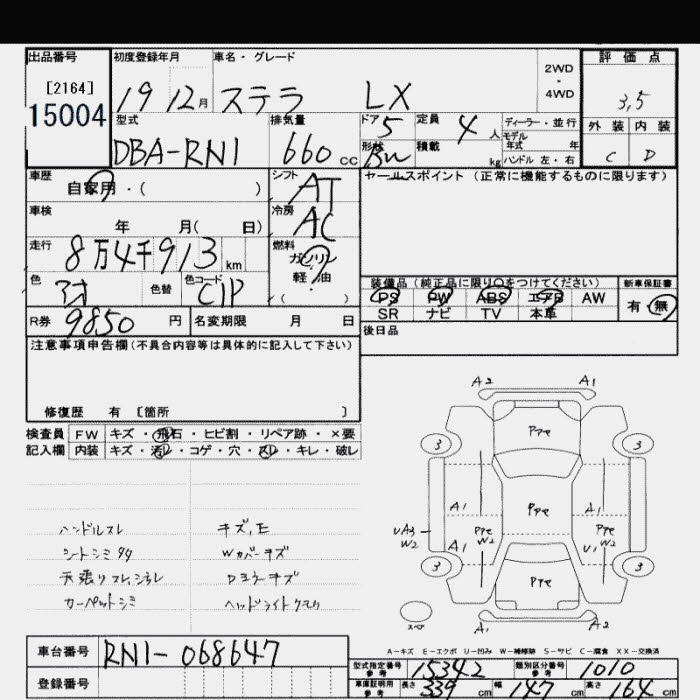 出品番号 初度登録年月 車名・グレード 評価点
[2164] 2WD
15004 19 12月 ステラ LX ・ 3,5
4WD
型式 排気量 ドア 定員 ディーラー・並行 外装 内装
DBA-RN1 660 CC 5 4 人 モデル
形状 積載 kg 年式 年 C D
ハンドル 左・右
車歴 シフト セールスポイント (正常に機能するものに限ります)
自家用・( ) AT
車検 年 月( 日) 冷房 AC
走行 8万4千913 km 燃料 ガソリン
軽油
( )
色 色替 色コード C1P
装備品 (純正品に限り○をつけてください) 新車保証書
PS PW ABS エアB AW 有・無
SR ナビ TV 本革
R券 9850 円 名変期限 月 日 後日品
注意事項申告欄(不具合内容等は具体的に記入して下さい)
修復歴 有 [箇所 ]
検査員 FW キズ・飛石・ヒビ割・リペア跡・×要
記入欄 内装 キズ・汚レ・コゲ・穴・スレ・キレ・破レ
A2 A1
PPe
3 3
A1 PPe A1
UA3 W2 PPe W2 PPe W2
A1 U1
3 PPe 3
スペア A1 A2
ハンドルスレ キズ,E
シートシミ タダ Wカバーキズ
天張りスレ,シミ Dミラーキズ
カーペットシミ ヘッドライトクモリ
A-キズ E-エクボ U-凹み W-補修跡 S-サビ C-腐食 XX-交換済
車台番号 RN1-068647
型式指定番号 参考 15342 類別区分番号 参考 1010
登録番号
車庫証明用 参考 長さ 339 cm 幅 147 cm 高さ 164 cm